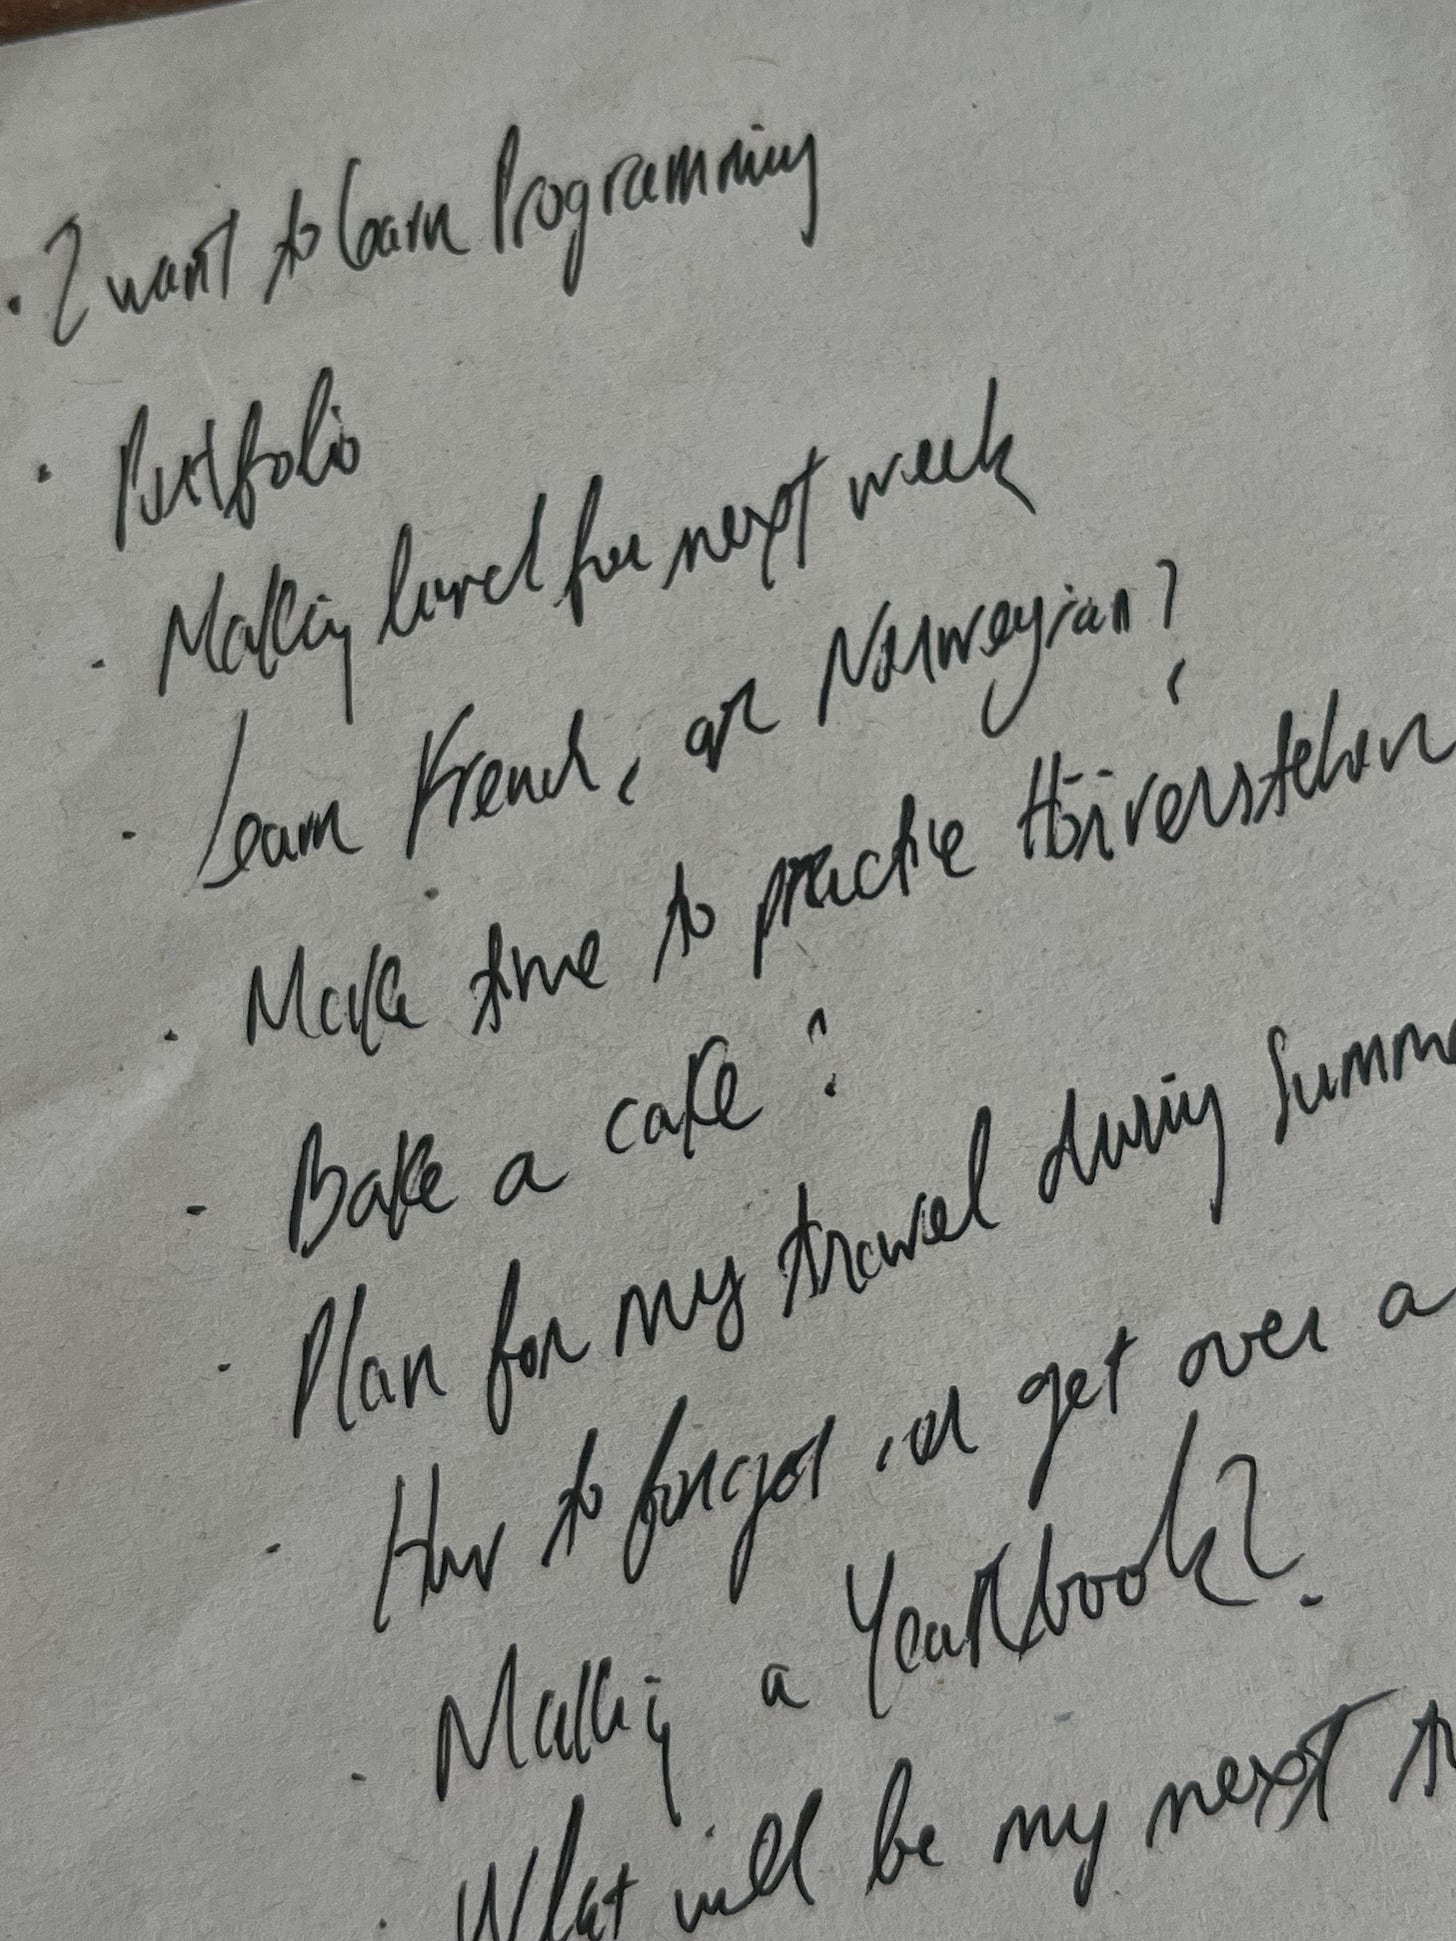 · I want to learn Programming
· Portfolio
· Making lunch for next week
· Learn French, or Norwegian?
· Make time to practice Hörverstehen
· Bake a cake?
· Plan for my travel during Summe
· How to forgot, or get over a
· Making a Yearbook?
· What will be my next t